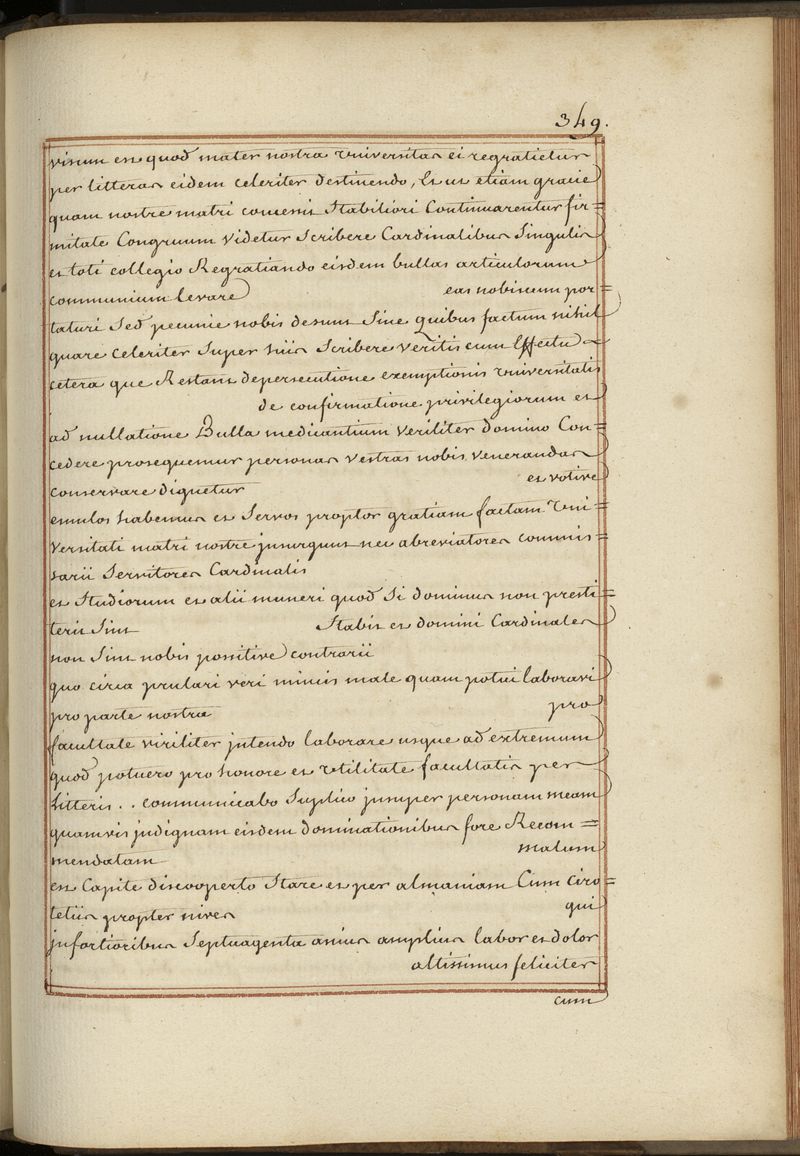 349.
visum est quod mater nostra Universitas ei regratietur
per litteras eidem celeriter destinendo, Et ut etiam gracie
quam nostre matri concessit Stabiliori Continuarentur fir=
mitate Congruum Videtur Scribere Cardinalibus Singulis
et toti collegio Regratiando eisdem bullas articulorum
communium levare eas nobiscum por=
taturi Sed pecunie nobis desunt Sine quibus factum nihil
quare Celeriter Super hiis Scribere Velitis cum Effectu
cetera que Restant de persecutione exemptionis Universitatis
de confirmatione privilegiorum et
ad nullatione Bulla medicantium Veriliter domino Con=
cedere prosequemur personas Vestras nobis Venerandas
Conservare dignetur et votive
emulos habemus et Servos propter gratiam factam Uni=
Versitati matri nostre insurgunt nec abreviatores commis=
sarii Servitores Cardinalis
et Studiorum et alii muneri quod Si dominus non presti=
terit Sint Stabit et domini Cardinales
non Sint nobis possitive contrarii
quo circa prulari veri minus male quam potui laboravi
pro parte nostra pro
facultate viriliter intendo laborare usque ad extremum
quod potuero pro honore et Utilitate facultatis per
litteris . . communicabo Suplico insuper personam meam
quamvis indignam eisdem dominationibus fore Recom=
mendatam malum
est Capite discooperto Stare et per almaniam Cum Ciro=
tetiis propter nives qui
infortioribus Septuagenta annis amplius labor et dolor
altissimus feliciter
cum